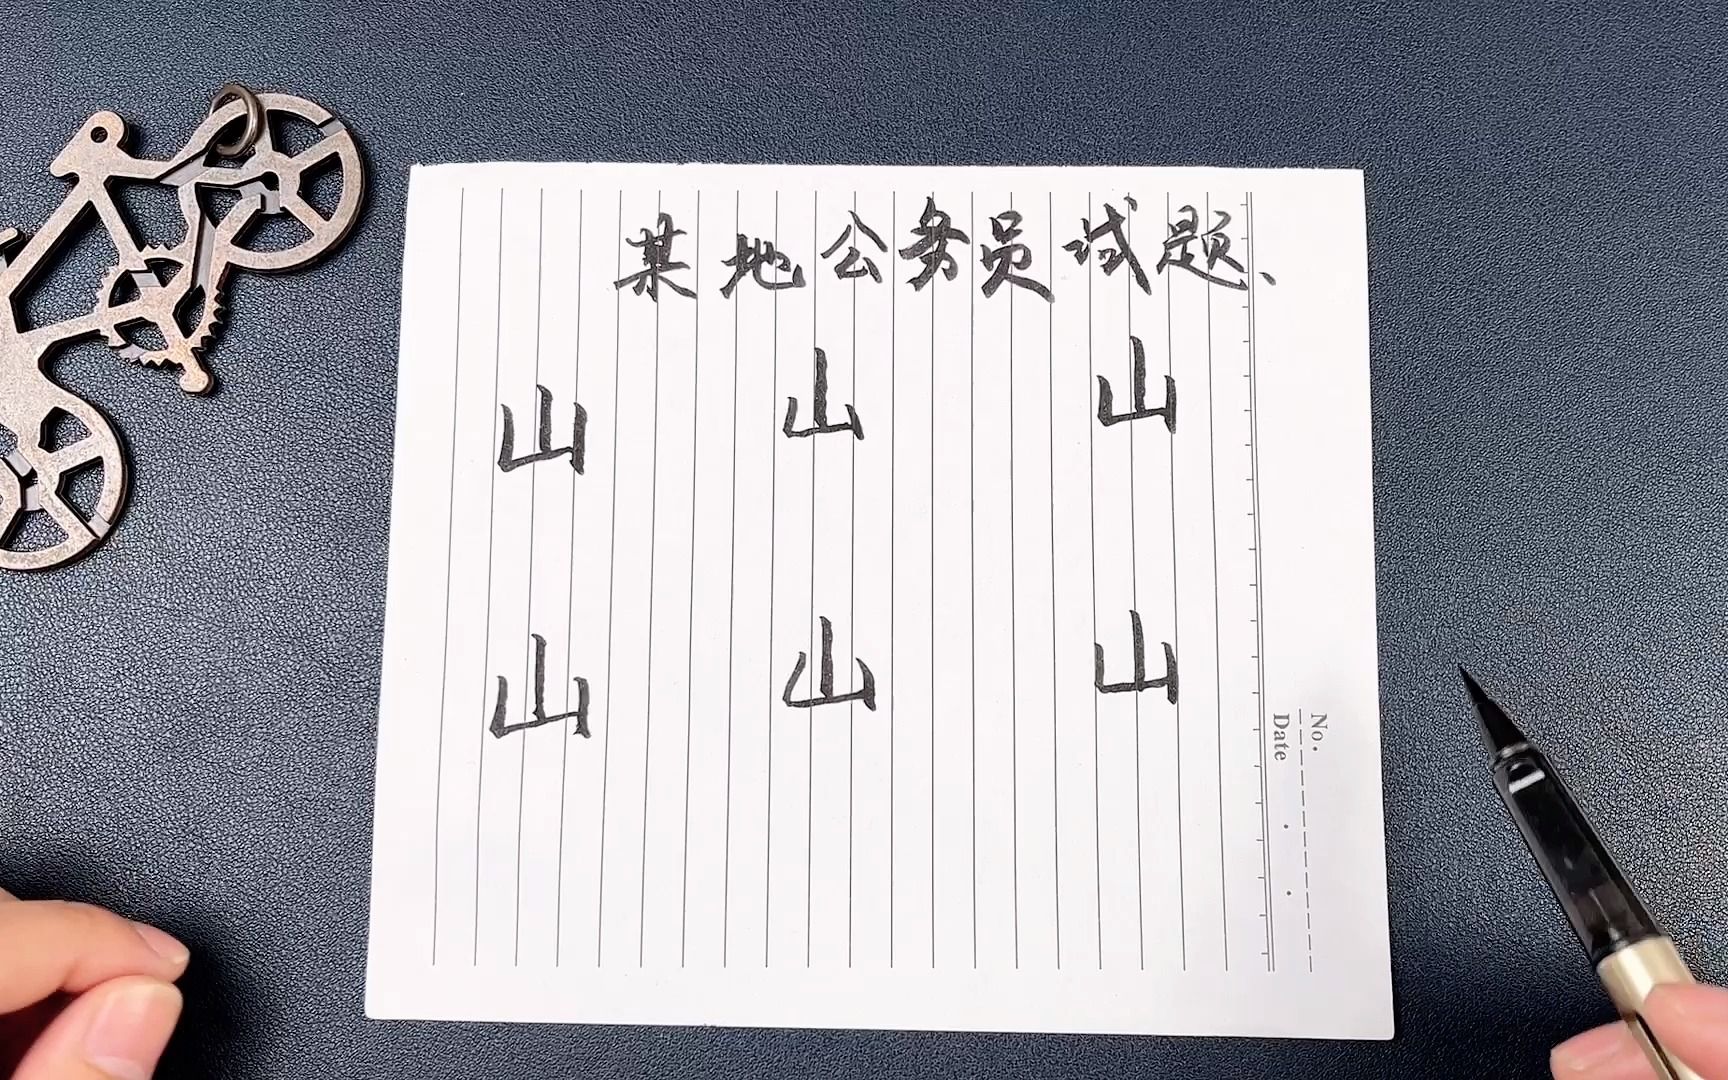 某地公务员试题、
山 山 山
山 山 山
No.
Date